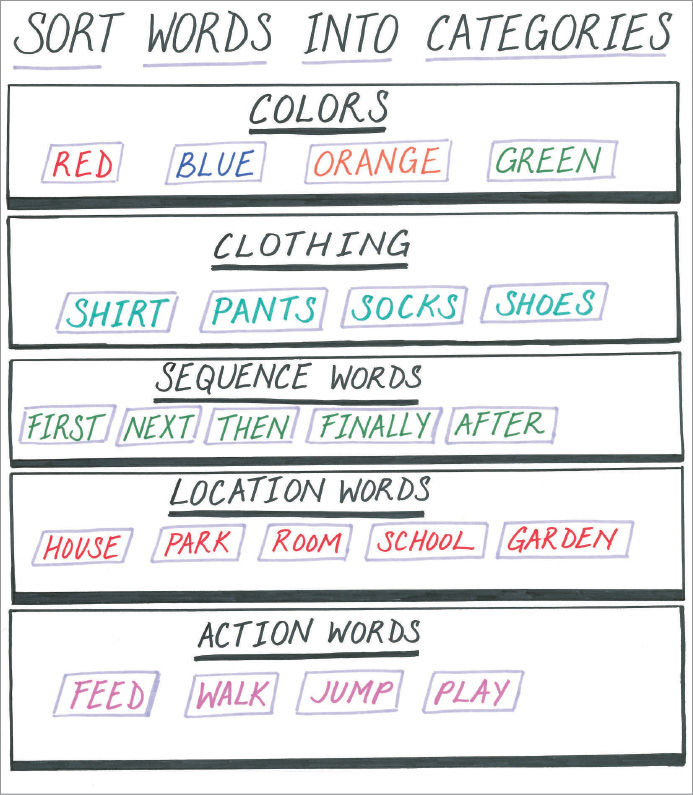 SORT WORDS INTO CATEGORIES
COLORS
RED BLUE ORANGE GREEN
CLOTHING
SHIRT PANTS SOCKS SHOES
SEQUENCE WORDS
FIRST NEXT THEN FINALLY AFTER
LOCATION WORDS
HOUSE PARK ROOM SCHOOL GARDEN
ACTION WORDS
FEED WALK JUMP PLAY